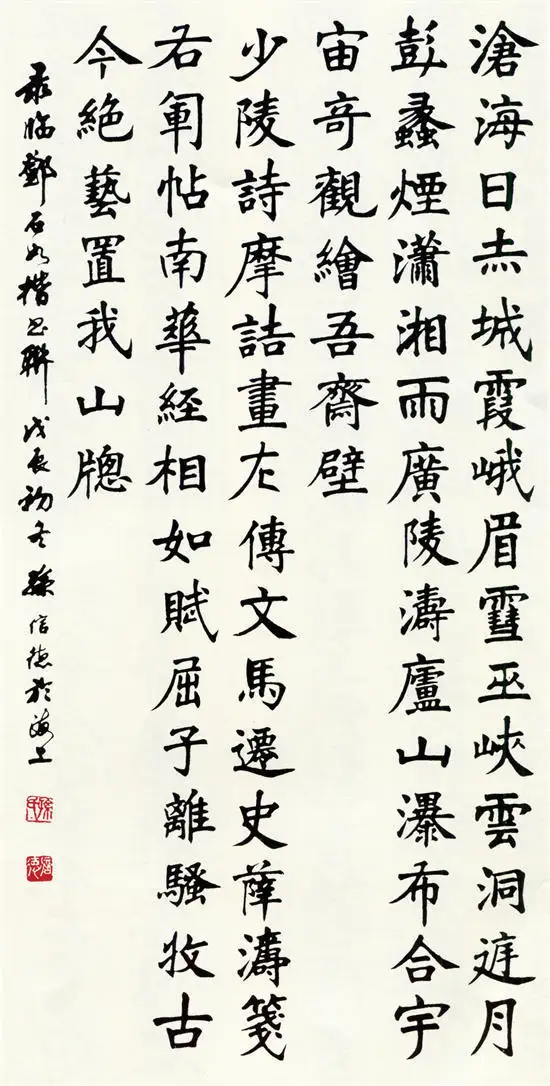 滄海日赤城霞峨眉雪巫峽雲洞庭月
彭蠡煙瀟湘雨廣陵濤廬山瀑布合宇
宙奇觀繪吾齋壁
少陵詩摩詰畫左傳文馬遷史薛濤箋
右軍帖南華經相如賦屈子離騷收古
今絶藝置我山牕
临鄧石如楷书聯戊辰初冬孫信德於海上